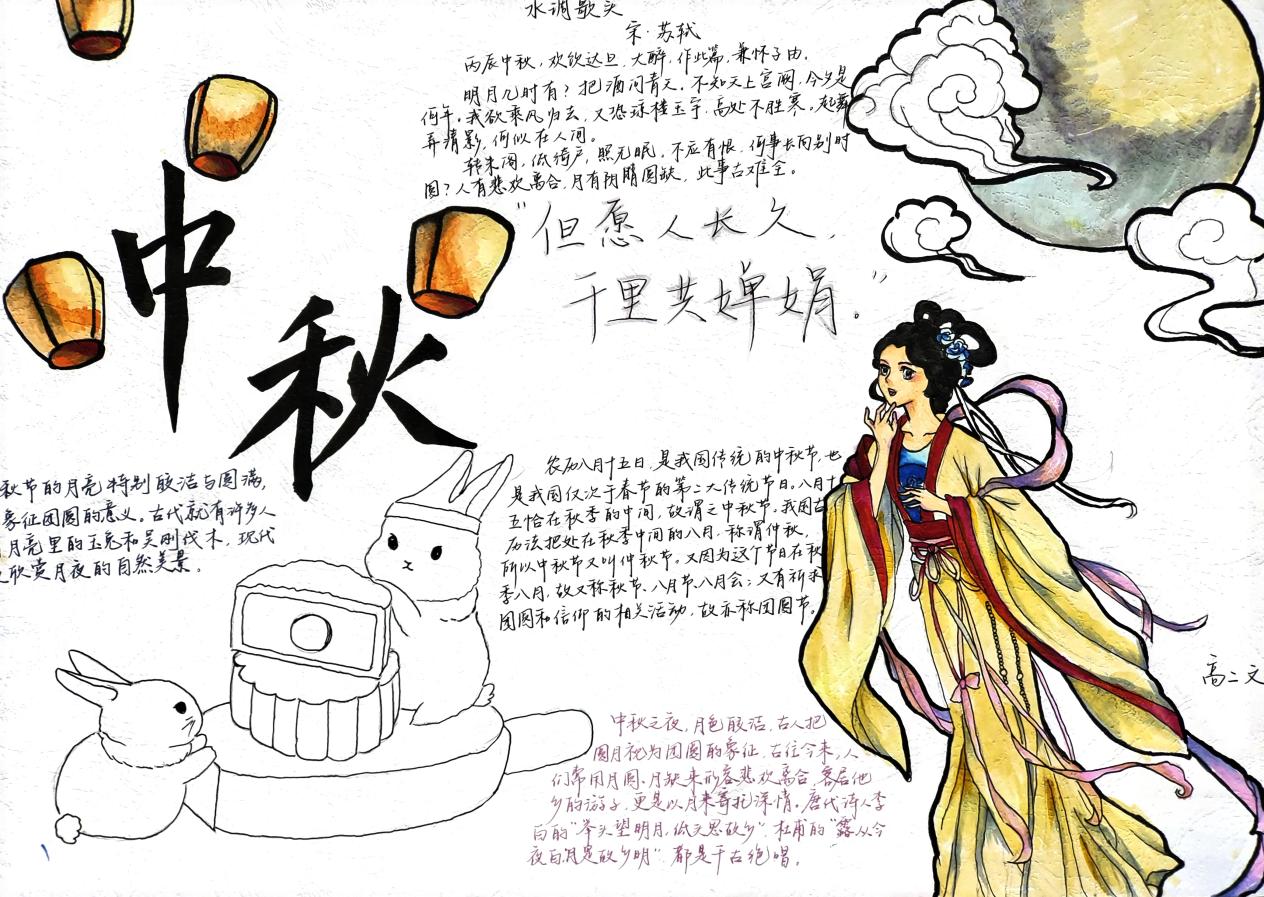 水调歌头
宋·苏轼
丙辰中秋，欢饮达旦，大醉，作此篇，兼怀子由。
明月几时有？把酒问青天。不知天上宫阙，今夕是
何年。我欲乘风归去，又恐琼楼玉宇，高处不胜寒。起舞
弄清影，何似在人间。
转朱阁，低绮户，照无眠。不应有恨，何事长向别时
圆？人有悲欢离合，月有阴晴圆缺，此事古难全。
“但愿人长久，
千里共婵娟。”
中
秋
秋节的月亮特别皎洁与圆满，
象征团圆的意义。古代就有许多人
月亮里的玉兔和吴刚伐木，现代
欣赏月夜的自然美景。
农历八月十五日，是我国传统的中秋节，也
是我国仅次于春节的第二大传统节日。八月十
五恰在秋季的中间，故谓之中秋节。我国古
历法把处在秋季中间的八月，称谓仲秋，
所以中秋节又叫仲秋节。又因为这个节日在秋
季八月，故又称秋节、八月节八月会；又有祈求
团圆和信仰的相关活动，故亦称团圆节。
中秋之夜，月色皎洁，古人把
圆月视为团圆的象征，古往今来，人
们常用月圆、月缺来形容悲欢离合，客居他
乡的游子，更是以月来寄托深情。唐代诗人李
白的“举头望明月，低头思故乡”，杜甫的“露从今
夜白，月是故乡明”，都是千古绝唱。
高二文